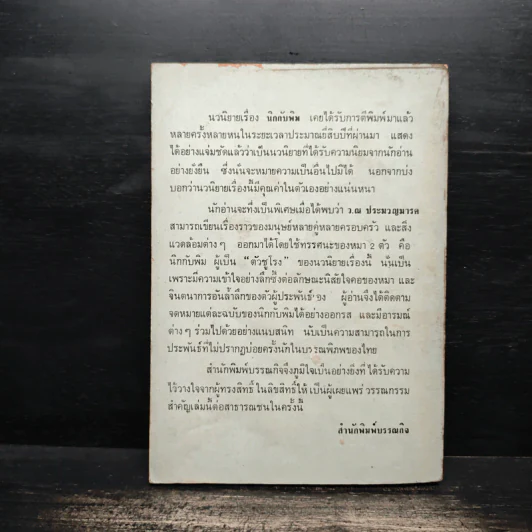 นวนิยายเรื่อง นิกกับพิม เคยได้รับการตีพิมพ์มาแล้ว
หลายครั้งหลายหนในระยะเวลาประมาณยี่สิบปีที่ผ่านมา แสดง
ได้อย่างแจ่มชัดแล้วว่าเป็นนวนิยายที่ได้รับความนิยมจากนักอ่าน
อย่างยั่งยืน ซึ่งนั่นจะหมายความเป็นอื่นไปมิได้ นอกจากบ่ง
บอกว่านวนิยายเรื่องนี้มีคุณค่าในตัวเองอย่างแน่นหนา
นักอ่านจะทึ่งเป็นพิเศษเมื่อได้พบว่า ว.ณ ประมวญมารค
สามารถเขียนเรื่องราวของมนุษย์หลายคู่หลายครอบครัว และสิ่ง
แวดล้อมต่าง ๆ ออกมาได้โดยใช้ทรรศนะของหมา 2 ตัว คือ
นิกกับพิม ผู้เป็น "ตัวชูโรง" ของนวนิยายเรื่องนี้ นั่นเป็น
เพราะมีความเข้าใจอย่างลึกซึ้งต่อลักษณะนิสัยใจคอของหมา และ
จินตนาการอันล้ำลึกของตัวผู้ประพันธ์เอง ผู้อ่านจึงได้ติดตาม
จดหมายแต่ละฉบับของนิกกับพิมได้อย่างออกรส และมีอารมณ์
ต่าง ๆ ร่วมไปด้วยอย่างแนบสนิท นับเป็นความสามารถในการ
ประพันธ์ที่ไม่ปรากฏบ่อยครั้งนักในบรรณพิภพของไทย
สำนักพิมพ์บรรณกิจจึงภูมิใจเป็นอย่างยิ่งที่ได้รับความ
ไว้วางใจจากผู้ทรงสิทธิ์ในลิขสิทธิ์ให้เป็นผู้เผยแพร่วรรณกรรม
สำคัญเล่มนี้ต่อสาธารณชนในครั้งนี้
สำนักพิมพ์บรรณกิจ